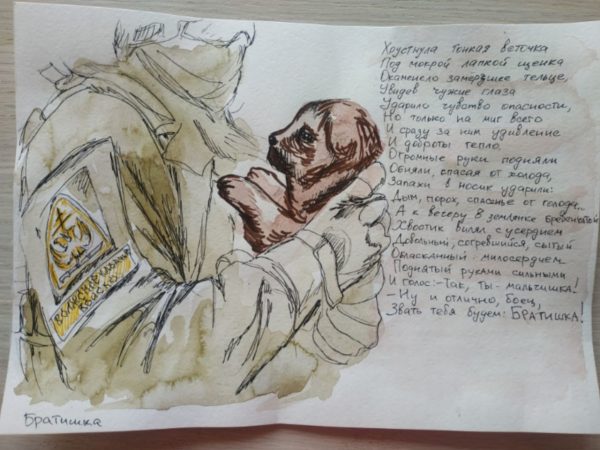 Хрустнула тонкая веточка
Под мокрой лапкой щенка
Окаменело замёрзшее тельце,
Увидев чужие глаза
Ударило чувство опасности,
Но только на миг всего
И сразу за ним удивление
И доброты тепло.
Огромные руки подняли
Обняли, спасая от холода,
Запахи в носик ударили:
Дым, порох, спасенье от голода...
А к вечеру в землянке бревенчатой
Хвостик вилял с усердием
Довольный, согревшийся, сытый
Обласканный - милосердием
Поднятый руками сильными
И голос: -Так, ты - мальчишка!
-Ну и отлично, боец,
Звать тебя будем: БРАТИШКА!
Братишка